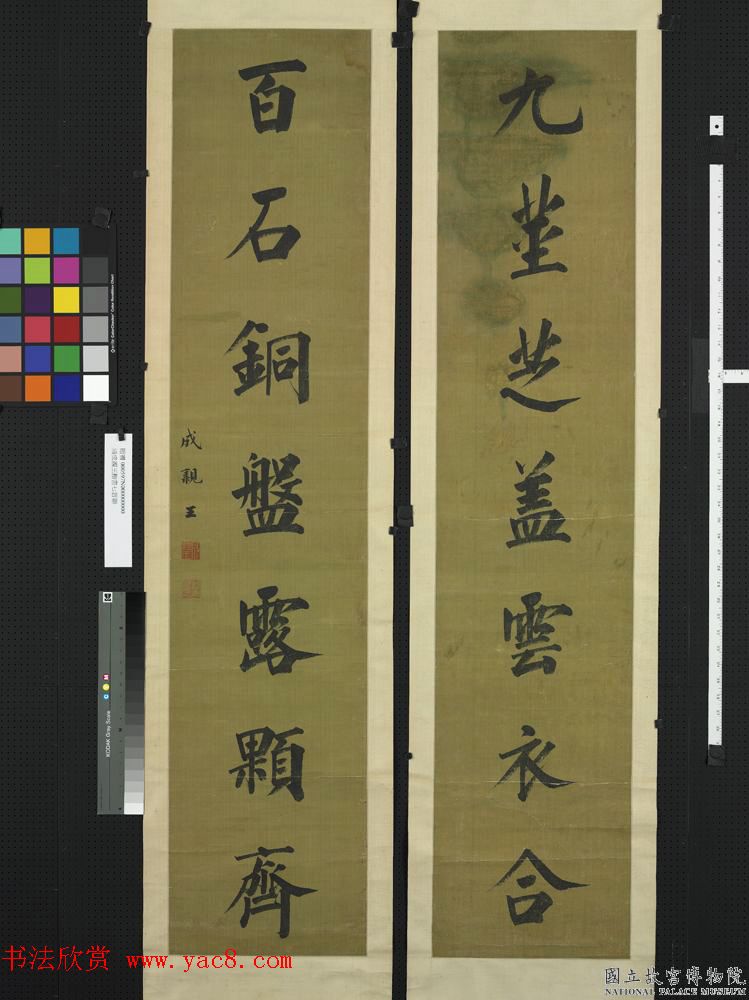 九莖芝盖雲衣合
百石銅盤露顆齊
成親王
KODAK Gray Scale
书法欣赏 www.yac8.com
國立故宮博物院
NATIONAL PALACE MUSEUM